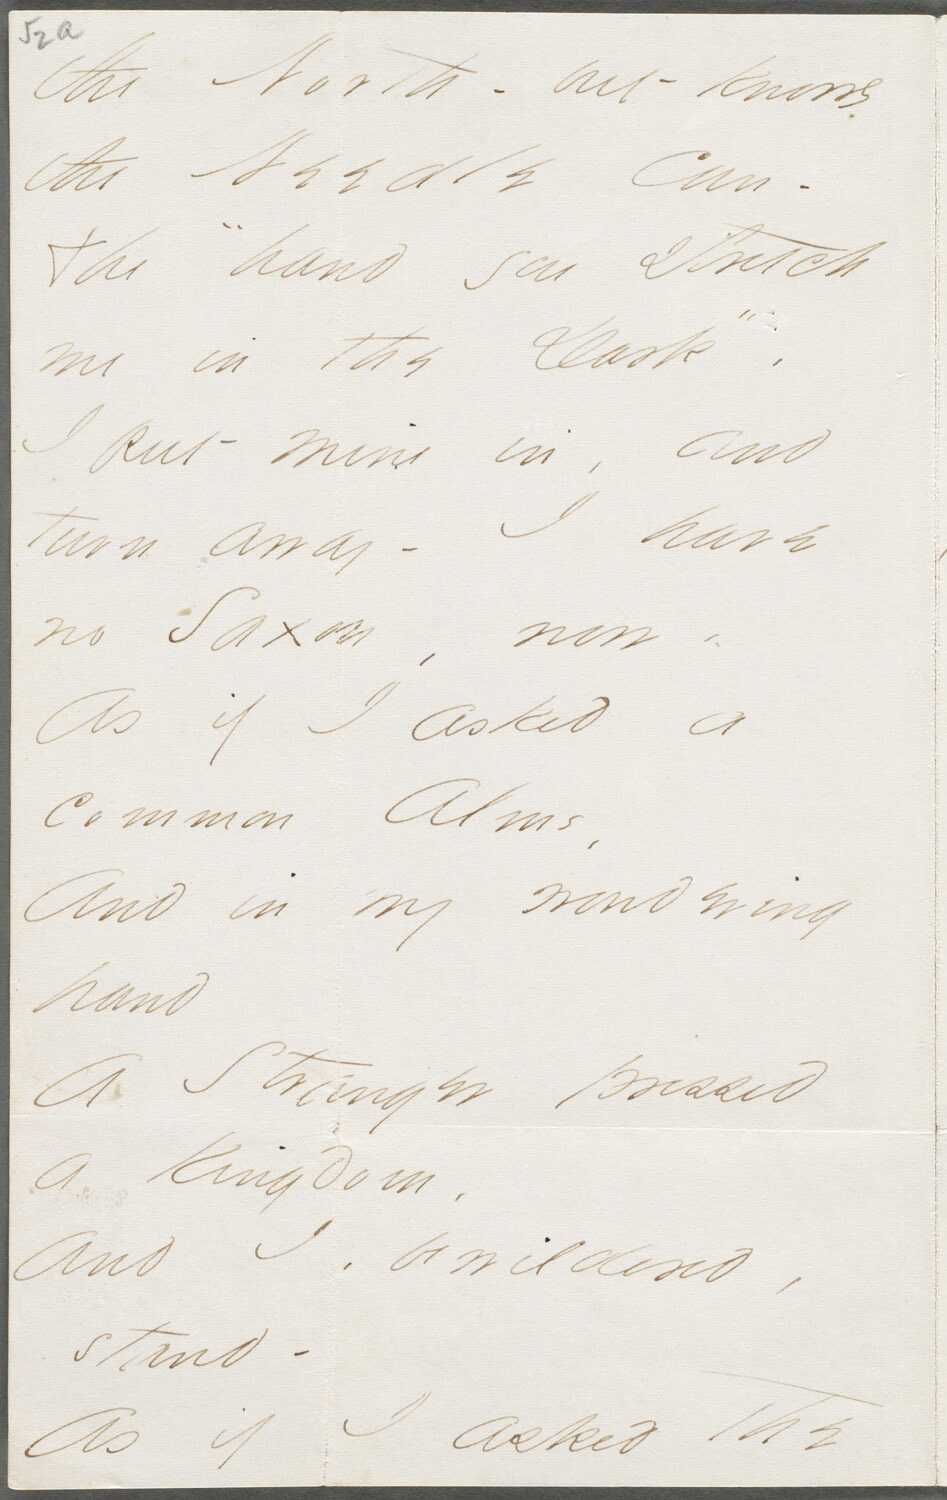 52a
the North - but knows
the Needle can -
The "hand you stretch
me in the Dark",
I put mine in, and
turn away - I have
no Saxon, now -
As if I asked a
common Alms,
And in my wondering
hand
A Stranger pressed
a Kingdom,
And I, bewildered,
stand -
As if I asked the